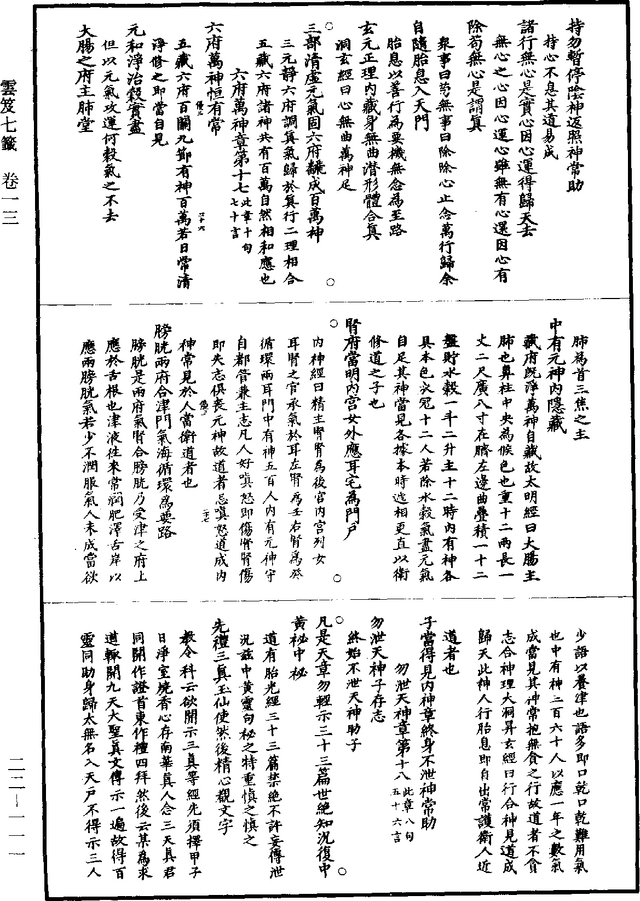 持勿暫停陰神返照神常助
持心不息其道易成
諸行無心是實心因心運得歸天去
無心之心因心運心雖無有心還因心有
除苟無心是謂真
眾事曰苟無事曰除除心止念萬行歸余
自隨胎息入天門
胎息以善行為要機無念為至路
玄元正理內藏身無曲潛形體合真
洞玄經曰心無曲萬神足
三部清虛元氣固六府翻成百萬神
三元靜六府調真氣歸於真行二理相合
五藏六府諸神共有百萬自然相和應也
六府萬神章第十七此章十句七十言
六府萬神恒有常
五藏六府百關九節有神百萬若日常清
淨修之即當自見
元和淨治穀實盡
但以元氣攻運何穀氣之不去
大腸之府主肺堂
肺為首三焦之主
中有元神內隱藏
藏府既淨萬神自藏故太明經曰大腸主
肺也鼻柱中央為候色也重十二兩長一
丈二尺廣八寸在臍左邊曲疊積一十二
盤貯水穀一斗二升主十二時內有神各
具本色衣冠十二人若除水穀氣盡元氣
自足其神當見各據本時遞相更直以衛
修道之子也
腎府當明內宮女外應耳宅為門戶
內神經曰精主腎腎為後宮內宮列女
耳腎之官承氣於耳左腎為壬右腎為癸
循環兩耳門中有神五百人內有元神守
自都管兼主志凡人好嗔怒即傷腎腎傷
即失志俱喪元神故道者忌嗔怒道成內
神常見於人當衛道者也
膀胱兩府合津門氣海循環為要路
膀胱是兩府氣腎合膀胱乃受津之府上
應於舌根也津液往來常潤肥澤舌岸以
應兩膀胱氣若少不潤服氣人未成當欲
少語以養津也語多即口乾口乾難用氣
也中有神二百六十人以應一年之數氣
成當見其神常抱無食之行故道者不食
志合神理大洞昇玄經曰行合神見道成
歸天此神人行胎息即自出常護衛人近
道者也
子當得見內神章終身不泄神常助
勿泄天神章第十八此章八句五十六言
勿泄天神子存志
終始不泄天神助子
凡是天章勿輕示三十三篇世絕知況復中
黃祕中祕
道有胎光經三十三篇禁絕不許妄傳泄
況茲中黃靈句祕之特重慎之慎之
先禮三真玉仙使然後精心觀文字
教令科云欲開示三真等經先須擇甲子
日淨室燒香心存南華真人念三天真君
同開作證首東作禮四拜然後云某為求
道輒開九天大聖真文傳示一遍故得百
靈同助身歸太無名入天戶不得示三人
雲笈七籤 卷一三
二二—一一一